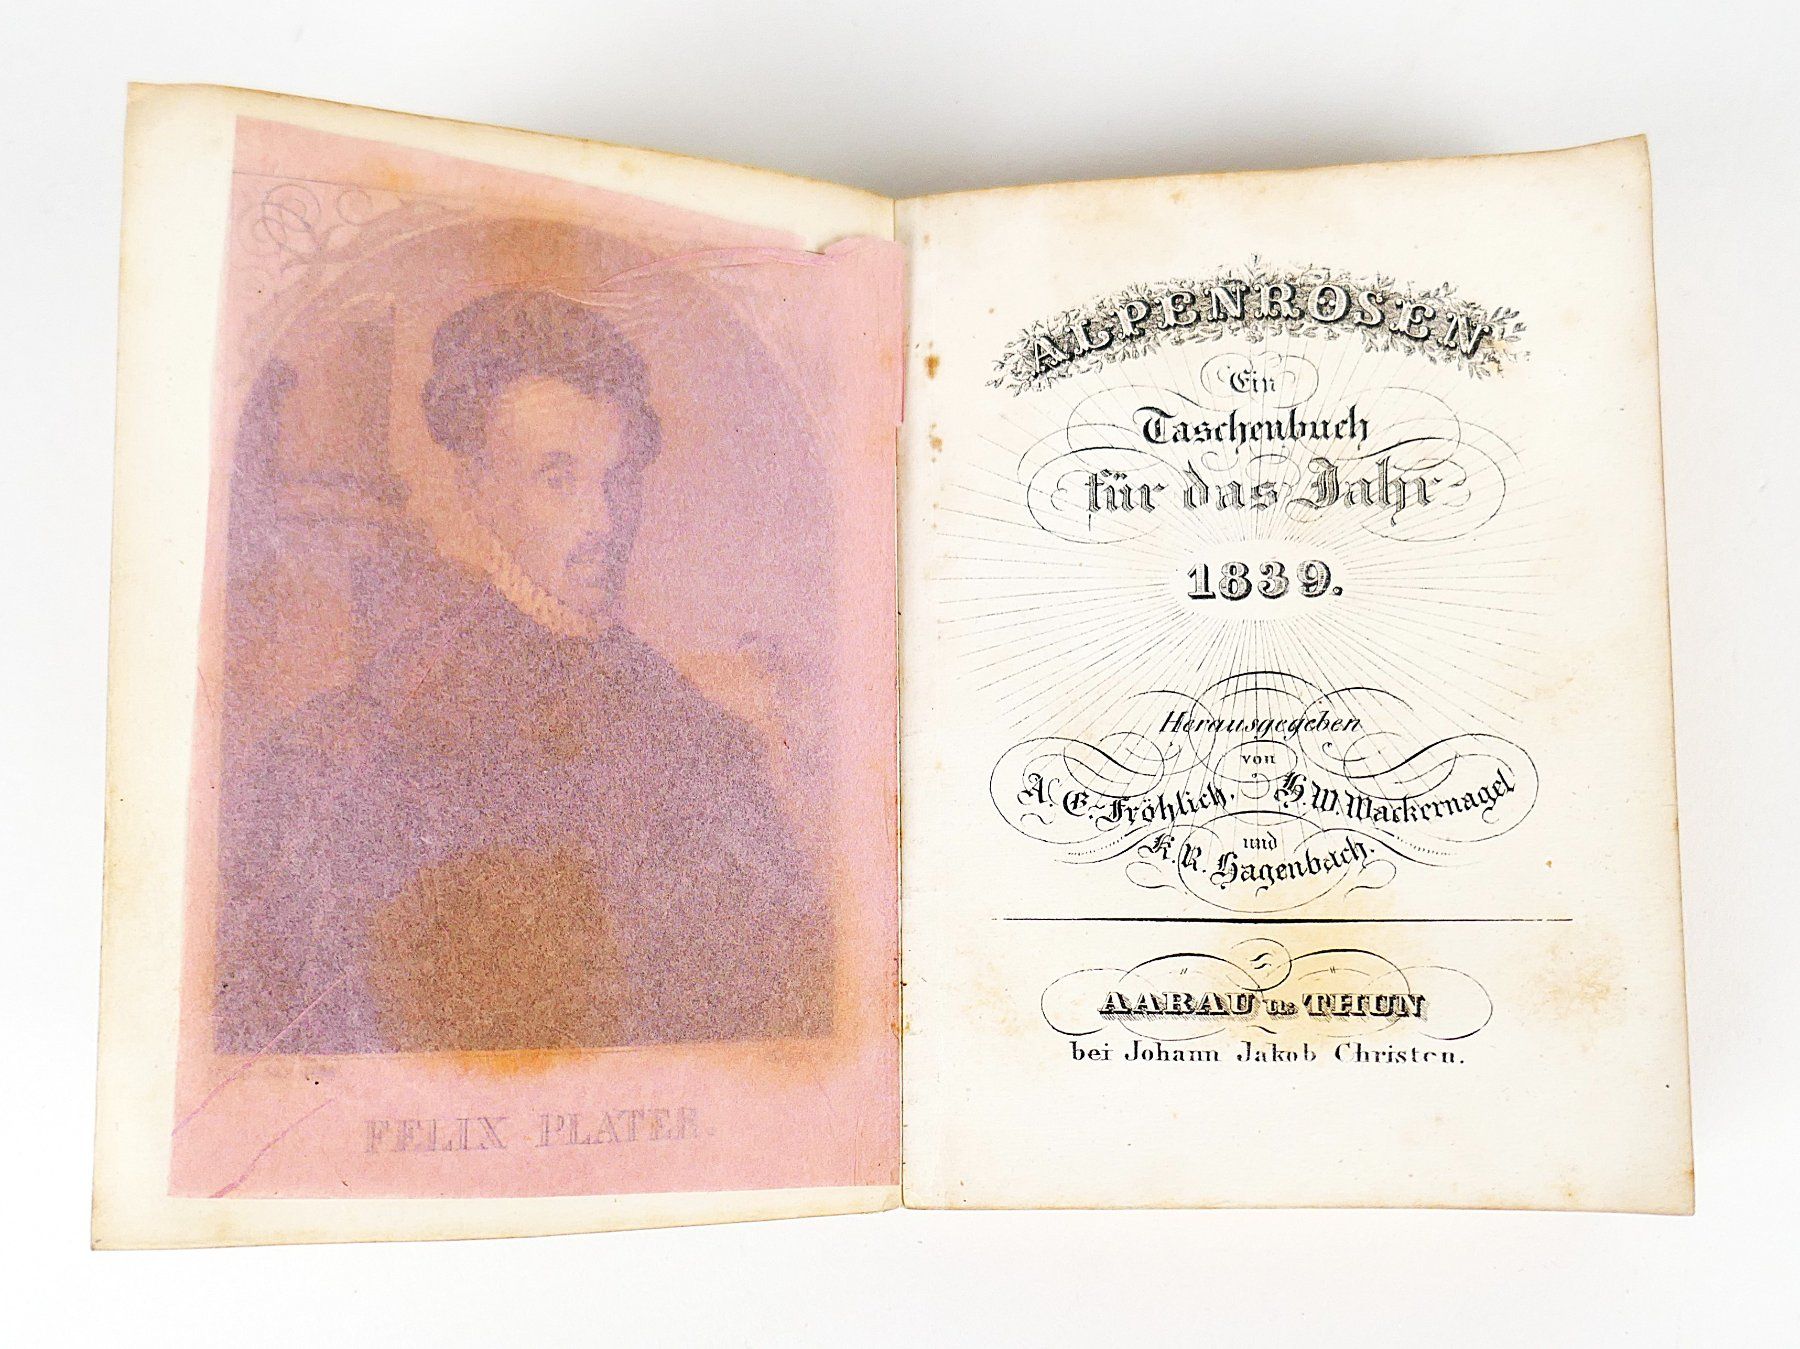 FELIX PLATER.
ALPENROSEN
Ein
Taschenbuch
für das Jahr
1839.
Herausgegeben
von
A. E. Fröhlich. H. W. Wackernagel
und
K. R. Hagenbach.
AARAU u. THUN
bei Johann Jakob Christen.